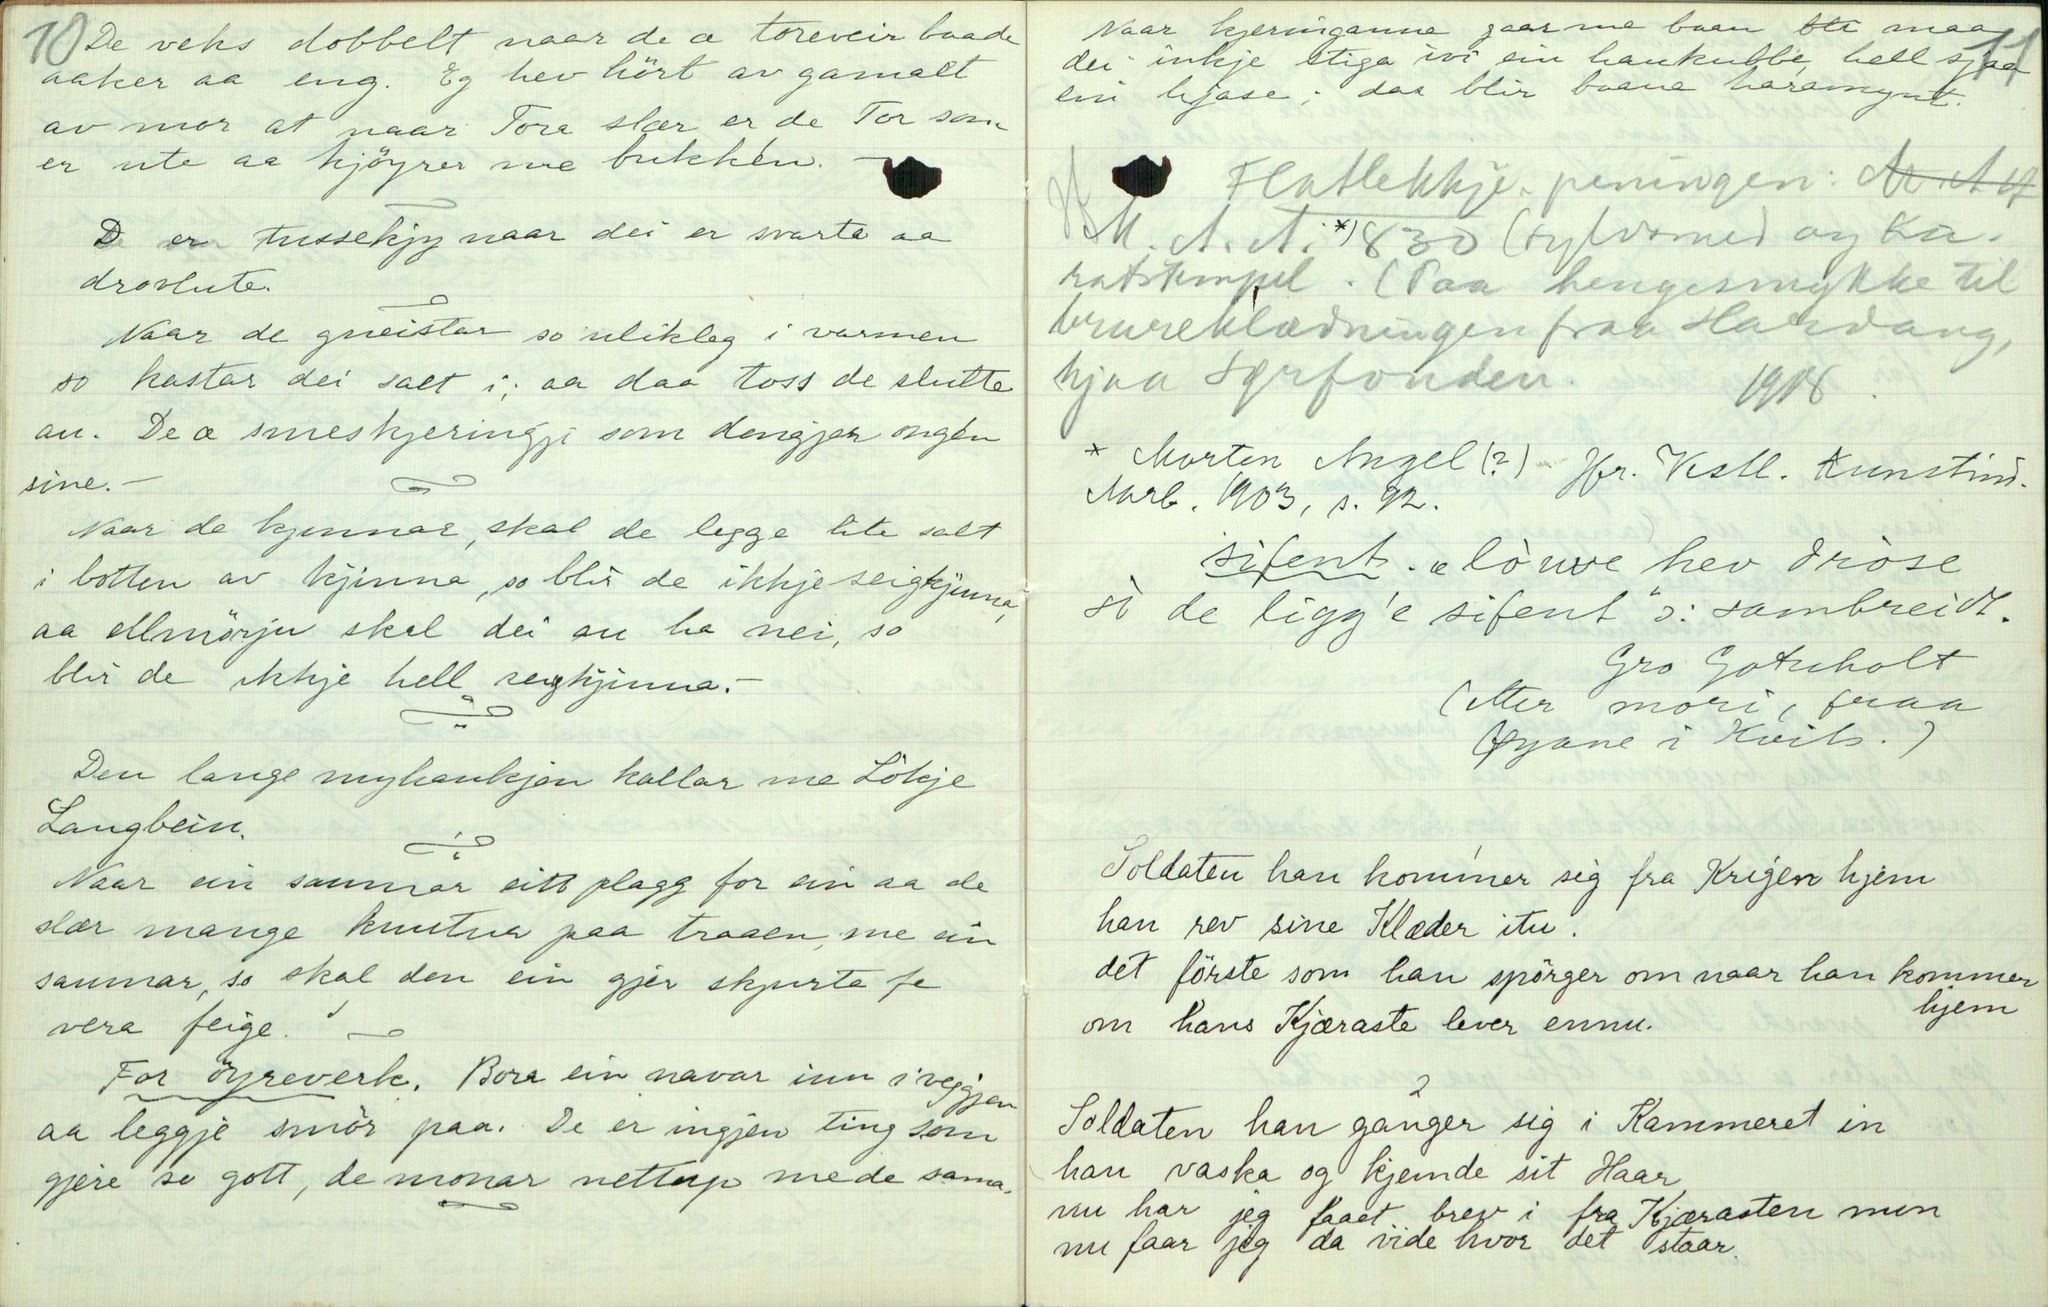 10
De veks dobbelt naar de æ toreveir baade
aaker aa eng. Eg hev hört av gamalt
av mor at naar Tora slær er de Tor som
er ute aa kjöyrer me bukken. —
D er tussekjy naar dei er svarte aa
droslute.
Naar de gneistar so ulikleg i varmen
so kastar dei salt i; aa daa toss de slutte
au. De æ smeskjeringji som dengjer ongan
sine. —
Naar de kjinnar, skal de legge lite salt
i botten av kjinna, so blir de ikkje seigkjinna,
aa ellmörju skal dei au ha nei, so
blir de ikkje hell seigkjinna. —
Den lange myhankjen kallar me Lökje
Langbein.
Naar ein saumar eitt plagg for ein aa de
slær mange knutur paa traaen, me ein
saumar, so skal den ein gjer skjurta fe
vera feige.
For öyreverk. Bora ein navar inn i veggjen
aa leggje smör paa. De er ingjen ting som
gjere so gott, de monar nettup me de sama.
11
Naar kjeringanne gaar me baan maa
dei inkje stiga ivi ein haukubbe, hell sjaa
ein hjase; daa blir baana haramynt.
Flatlekkje-peningen:
M. A. A. *) 830 (sylvsmed og Ka-
ratstempel. (Paa hengesmykke til
brureklædningen fraa Hardang,
hjaa Sørfonden. 1918.
* Morten Angel (?) Jfr. Vestl. Kunstind.
Aarb. 1903, s. 92.
sifent. "lòuve hev dròse
sò de ligg'e sifent" ɔ: sambreidt.
Gro Gotuholt
(etter mori, fraa
Øyane i Kvits.)
Soldaten han kommer sig fra Krigen hjem
han rev sine Klæder itu.
det förste som han spörger om naar han kommer
hjem
om hans Kjæraste lever ennu.
2
Soldaten han ganger sig i Kammeret in
han vaska og kjemde sit Haar
nu har jeg faaet brev i fra Kjærasten min
nu faar jeg da vide hvor det staar.